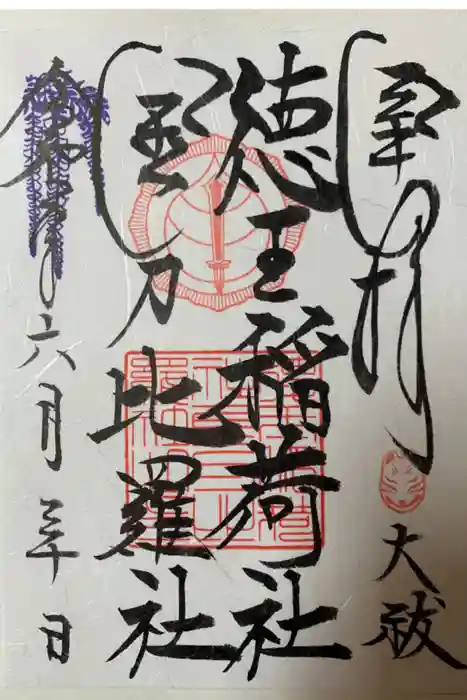 奉拝
大祓
徳王稲荷社
刀比羅社
令和 六月三十日